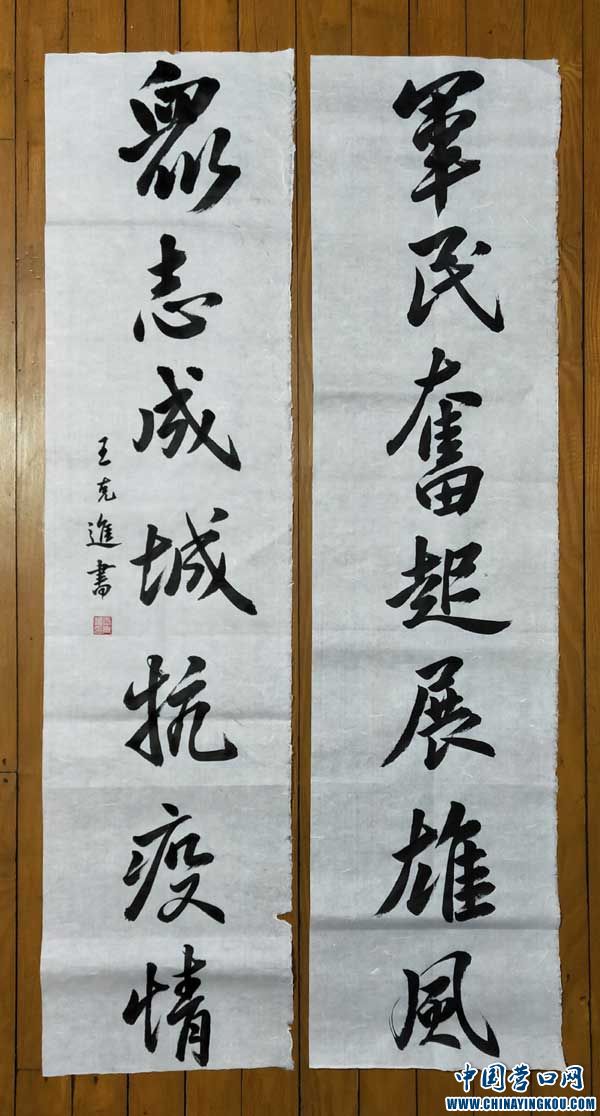 軍民奮起展雄風
眾志成城抗疫情
王克進書
中国营口网
WWW.CHINAYINGKOU.COM